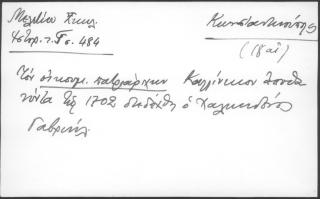 Μελετίου Ἐκκλ.
Ἱστορ. τ. Γ σ. 484
Κωνσταντινούπολις
(18 αἰ)
Τὸν οἰκουμ. πατριάρχην Καλλίνικον θανόντα
τῷ 1702 διεδέχθη ὁ Χαλκηδόνος
Γαβριήλ.